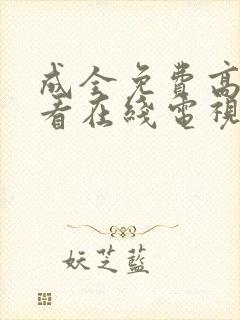 成全免费高
看在线電視
妖芝藍